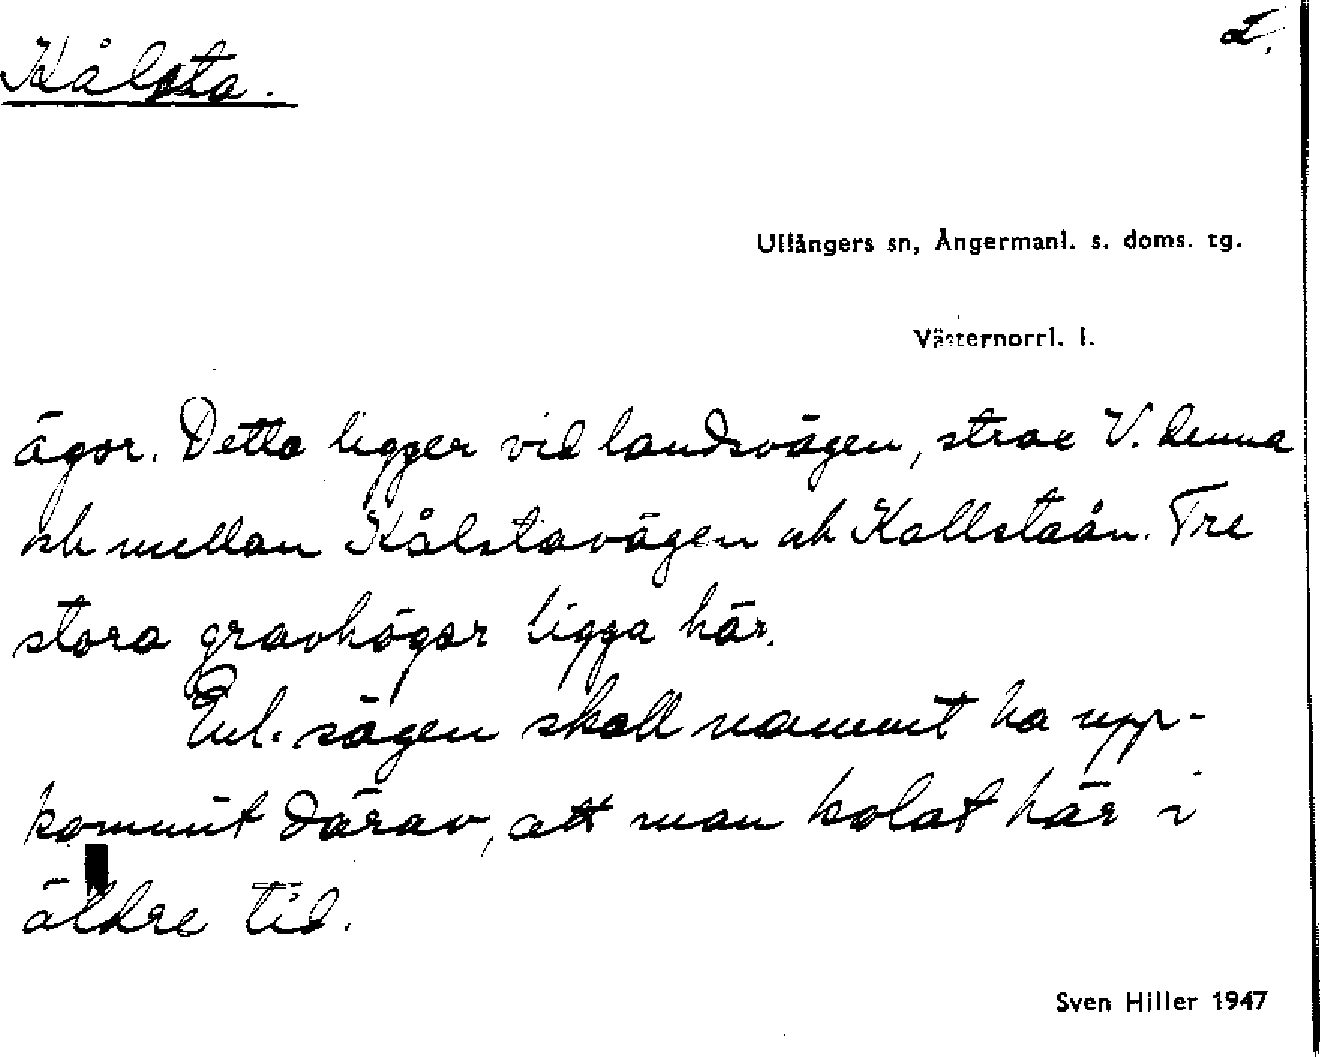 2.
Kålsta.
Ullångers sn, Ångermanl. s. doms. tg.
Västernorrl. l.
ägor. Detta ligger vid landsvägen, strax V. denna
och mellan Kålstavägen och Kallstaån. Tre
stora gravhögar ligga här.
Enl. sägen skall namnet ha upp-
kommit därav, att man kolat här i
äldre tid.
Sven Hiller 1947